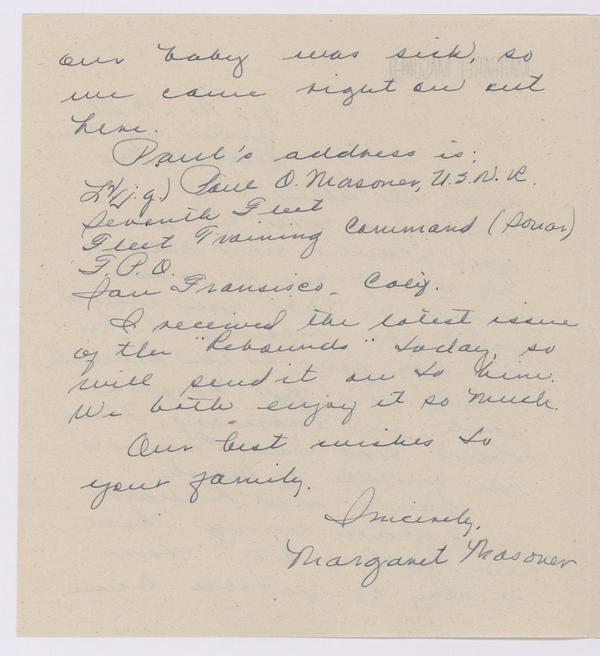 our baby was sick, so
we came right on out
here.
Paul's address is:
Lt(j.g.) Paul O. Masoner, U.S.N.R.
Seventh Fleet
Fleet Training Command (Sonar)
F.P.O.
San Fransisco - Calif.
I received the latest issue
of the "Rebounds" today, so
will send it on to him.
We both enjoy it so much.
Our best wishes to
your family.
Sincerely,
Margaret Masoner